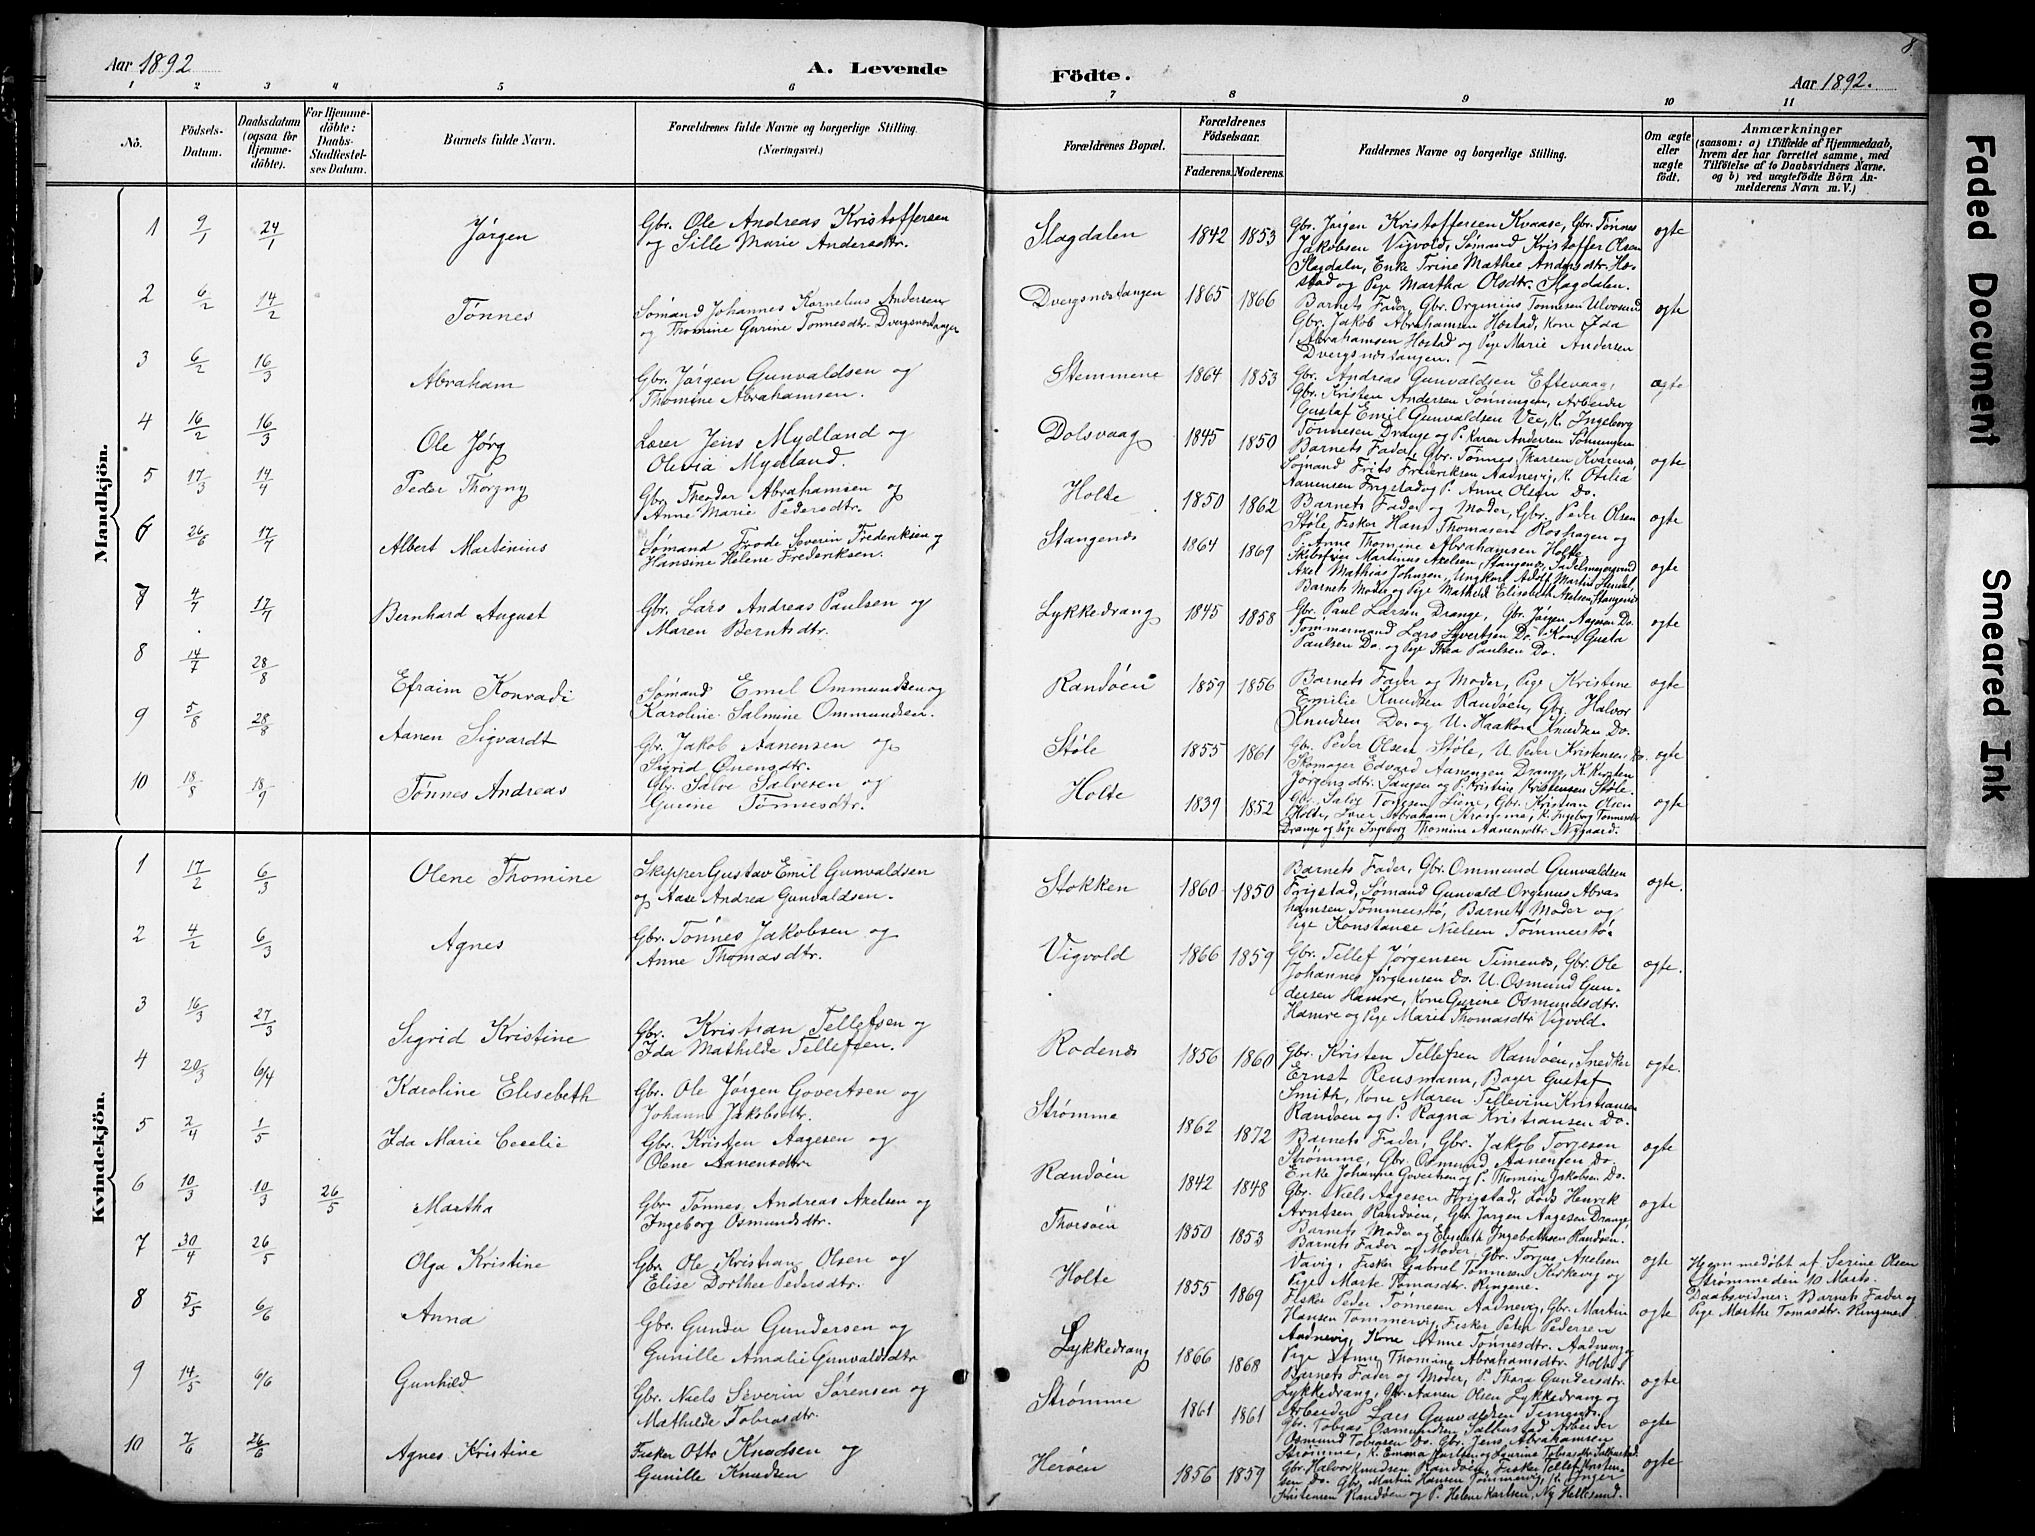 Aar 1892
A. Levende
Födte.
Aar 1892.
8
1 2 3 4 5 6 7 8 9 10 11
No.
Födsels-Datum.
Daabsdatum (ogsaa for Hjemme-döbte).
For Hjemme-döbte: Daabs-Stadfæstel-ses Datum.
Barnets fulde Navn.
Forældrenes fulde Navne og borgerlige Stilling.
(Næringsvei.)
Forældrenes Bopæl.
Forældrenes Födselsaar.
Faderens. Moderens.
Faddernes Navne og borgerlige Stilling.
Om ægte eller uægte födt.
Anmærkninger
(saasom: a) i Tilfælde af Hjemmedaab, hvem der har forrettet samme, med Tilföielse af to Daabsvidners Navne. og b) ved uægtefödte Börn An-melderens Navn m. V.)
Mandkjön.
1 9/1 24/1 Jørgen
Gbr. Ole Andreas Kristoffersen
og Sille Marie Andersdtr.
Slagdalen 1842 1853
Gbr. Jørgen Kristoffersen Kvaase, Gbr. Tønnes
Jakobsen Vigvold, Sømand Kristoffer Olsen
Slagdalen, Enke Trine Mathee Andersdtr. Ho-
stad og Pige Martha Olsdtr. Slagdalen.
ægte
2 6/2 14/2 Tønnes
Sømand Johannes Kornelius Andersen
og Thomine Gurine Tønnesdtr. Dvergsnæstangen
Dvergsnæstangen 1865 1866
Barnets Fader, Gbr. Orginius Tønnesen Ulvøsund
Gbr. Jakob Abrahamsen Høstad, Kone Ida
Abrahamsen Høstad og Pige Marie Andersen
Dvergsnæstangen.
ægte
3 6/2 16/3 Abraham
Gbr. Jørgen Gunvaldsen og
Thomine Abrahamsen.
Stemmene 1864 1853
Gbr. Andreas Gunvaldsen Eftevaag,
Gbr. Kristen Andersen Sønningen, Arbeider
Gustaf Emil Gunvaldsen Vee, K. Ingeborg
Tønnesen Drange og P. Karen Andersen Sønningen
ægte
4 16/2 16/3 Ole Jørg
Lærer Jens Mydland og
Olevia Mydland.
Dolsvaag 1845 1850
Barnets Fader, Gbr. Tønnes Tharsen Kvarenes,
Sømand Frits Frederiksen Aadnevig, K. Otilia
Aanensen Frigstad og P. Anne Olsen Do.
ægte
5 17/3 14/4 Peder Thorgny
Gbr. Theodor Abrahamsen og
Anne Marie Pedersdtr.
Holte 1850 1862
Barnets Fader og Moder, Gbr. Peder Olsen
Støle, Fisker Hans Thomasen Roshagen og
P. Anne Thomine Abrahamsen Holte.
ægte
6 26/6 17/7 Albert Martinius
Sømand Frode Severin Frederiksen og
Hansine Helene Frederiksen.
Stangenes 1864 1869
Skibsfører Martinus Axelsen, Stangenes, Sadelmagersvend
Axel Mathias Johnsen, Ungkarl Adolf Martin Hendal,
Barnets Moder og Pige Mathild Elisabeth Axelsen, Stangenes
ægte
7 4/7 17/7 Bernhard August
Gbr. Lars Andreas Paulsen og
Maren Berntsdtr.
Lykkedrang 1845 1858
Gbr. Paul Larsen Drange, Gbr. Jørgen Aagesen Do.
Tømmermand Lars Syvertsen Do. Kone Gusta
Paulsen Do. og Pige Thea Paulsen Do.
ægte
8 14/7 28/8 Efraim Konradi
Sømand Emil Ommundsen og
Karoline Salmine Ommundsen.
Randøen 1859 1856
Barnets Fader og Moder, Pige Kristine
Emilie Knudsen Randøen, Gbr. Halvor
Knudsen Do. og U. Haakon Knudsen Do.
ægte
9 5/8 28/8 Aanen Sigvardt
Gbr. Jakob Aanensen og
Sigrid Ounsdtr.
Støle 1855 1861
Gbr. Peder Olsen Støle, U. Peder Kristensen Do.
Skomager Edvard Aanensen Drange, K. Kirsten
Jørgensdtr. Sangen og P. Kristine Kristensen Støle.
ægte
10 18/8 18/9 Tønnes Andreas
Gbr. Salve Salvesen og
Gurine Tønnesdtr.
Holte 1839 1852
Gbr. Salve Torgesen Liene, Gbr. Kristian Olsen
Holte, Lærer Abraham Strømme, K. Ingeborg Tønnesdtr.
Drange og Pige Ingeborg Thomine Aanensdtr. Nygaard.
ægte
Kvindekjön.
1 17/2 6/3 Olene Thomine
Skipper Gustav Emil Gunvaldsen
og Aase Andrea Gunvaldsen.
Stokken 1860 1850
Barnets Fader, Gbr. Ommund Gunvaldsen
Frigstad, Sømand Gunvald Orgenus Abra-
hamsen Tømmerstø, Barnets Moder og
Pige Konstance Nielsen Tømmerstø.
ægte.
2 4/2 6/3 Agnes
Gbr. Tønnes Jakobsen og
Anne Thomasdtr.
Vigvold 1866 1859
Gbr. Tellef Jørgensen Timenes, Gbr. Ole
Johannes Jørgensen Do. U. Osmund Gun-
dersen Hamre, Kone Gurine Osmundsdtr.
Hamre og Pige Marie Thomasdtr Vigvold.
ægte.
3 16/3 27/3 Sigrid Kristine
Gbr. Kristian Tellefsen og
Ida Mathilde Tellefsen.
Rodenes 1856 1860
Gbr. Kristen Tellefsen Randøen, Snedker
Ernst Rensmann, Bager Gustaf
Smith, Kone Maren Tellevine Kristiansen
Randøen og P. Ragna Kristiansen Do.
ægte.
4 20/3 6/4 Karoline Elisebeth
Gbr. Ole Jørgen Govertsen og
Johanne Jakobsdtr.
Strømme 1862 1872
Barnets Fader, Gbr. Jakob Torjesen
Strømme, Gbr. Osmund Aanensen Do.
Enke Johanne Govertsen og P. Thomine Jakobsen Do.
ægte
5 2/4 1/5 Ida Marie Cecelie
Gbr. Kristen Aagesen og
Olene Aanensdtr.
Randøen 1842 1848
Gbr. Niels Aagesen Frigstad, Lods Henrik
Arntsen Randøen, Gbr. Jørgen Aagesen Drange,
Barnets Moder og Elisebeth Ingebrethsen Randøen.
ægte
6 10/3 10/3 26/5 Martha
Gbr. Tønnes Andreas Axelsen og
Ingeborg Osmundsdtr.
Thorsøen 1850 1853
Barnets Fader og Moder, Gbr. Torgus Axelsen
Vavig, Fisker Gabriel Tønnesen Kirkevig og
Pige Marte Tomasdtr. Ringene.
ægte
Hjemmedøbt af Serine Olsen
Strømme den 10 Marts.
Daabsvidner: Barnets Fader og
Pige Marthe Tomasdtr. Ringene
7 30/4 26/5 Olga Kristine
Gbr. Ole Kristian Olsen og
Elise Dorthea Pedersdtr.
Holte 1855 1869
Fisker Peder Tønnesen Aadnevig, Gbr. Martin
Hansen Tømmervig, Fisker Peter Pedersen
Aadnevig, Kone Anne Tønnesdtr. Aadnevig
Pige Anne Thomine Abrahamsdtr. Holte
ægte
8 5/5 6/6 Anna
Gbr. Gunder Gundersen og
Gunille Amalie Gunvaldsdtr
Lykkedrang 1866 1868
Barnets Fader og Moder, P. Thora Gundersdtr.
Lykkedrang, Gbr. Aanen Olsen Lykkedrang og
Arbeider Lars Gunvaldsen Timenes.
ægte
9 14/5 6/6 Gunhild
Gbr. Niels Severin Sørensen og
Mathilde Tobiasdtr.
Strømme 1861 1861
Gbr. Tobias Osmundsen Salbustad Arbeider
Osmund Tobiasen Do. Gbr. Jens Abrahamsen
Strømme, K. Emma Karlsen og Laurine Tobiasdtr. Salbustad.
ægte
10 7/6 26/6 Agnes Kristine
Fisker Otto Knudsen og
Gunille Knudsen
Herøen 1856 1859
Gbr. Halvor Knudsen Randøen, Fisker Tellef Kristen-
sen Do. Gbr. Martin Hansen Tømmervig, K. Inger
Kristensen Randøen og P. Helene Karlsen, Ny Hellesund.
ægte
Faded Document
Smeared Ink